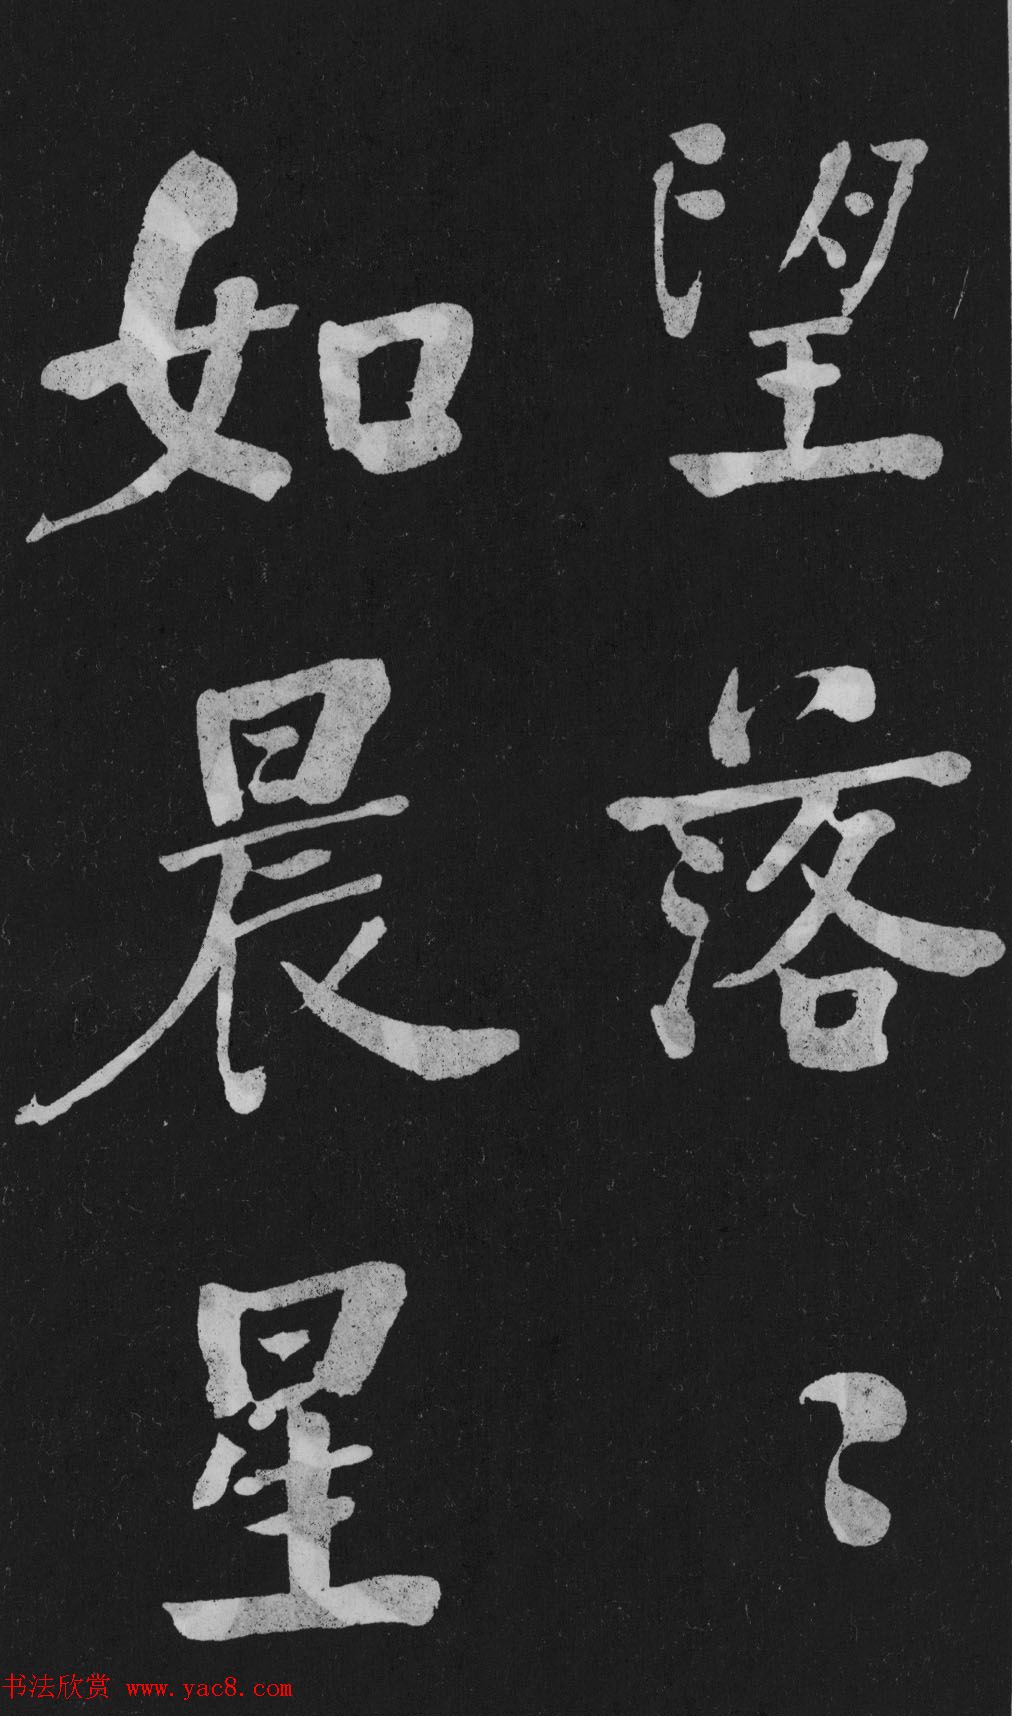 望落々
如晨星
书法欣赏 www.yac8.com